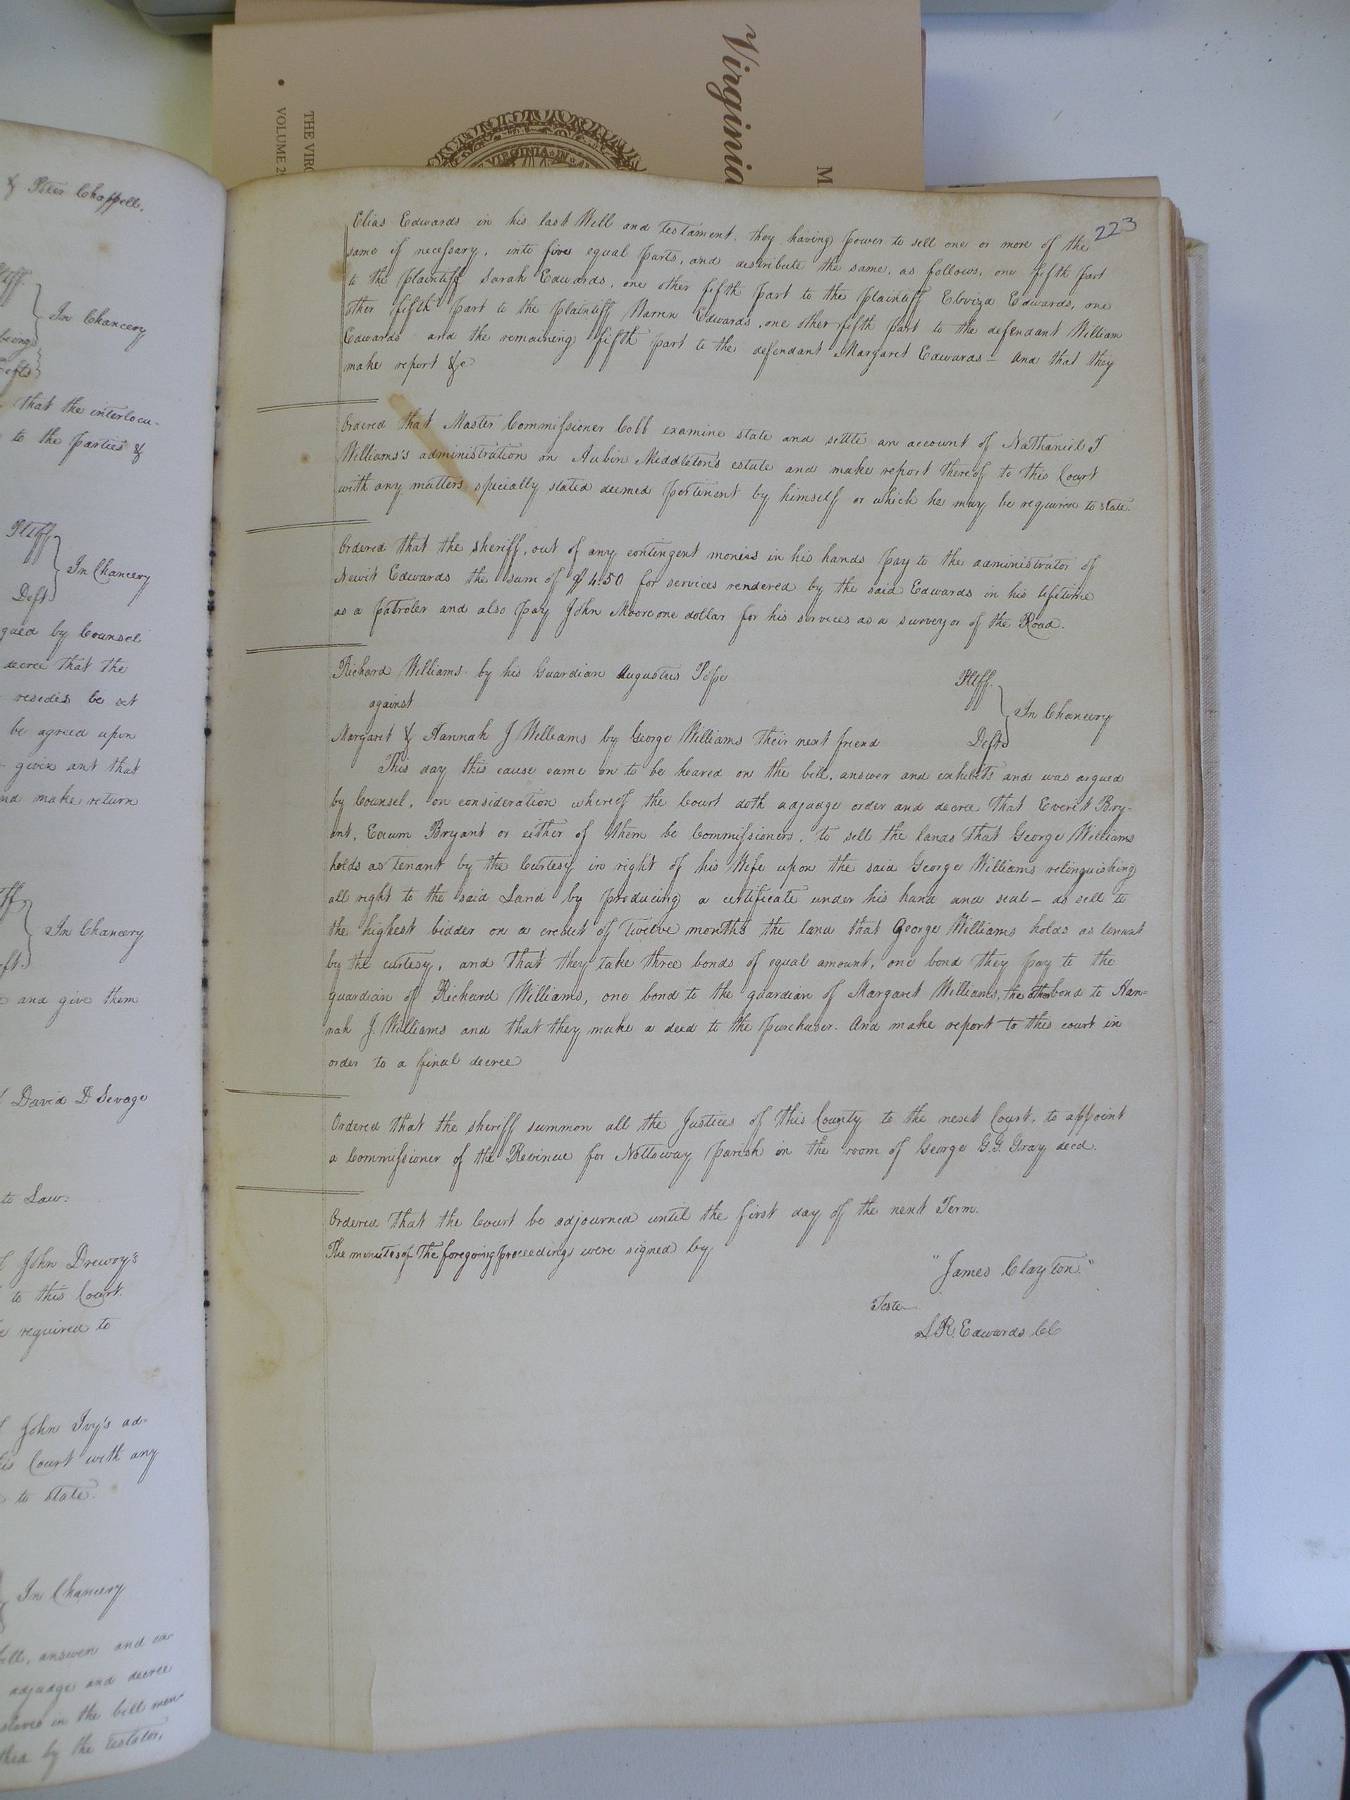 Virginia
M
THE VIRG
VOLUME 2
VIRGINIA IN
& Peter Chappell.
Pltff.
In Chancery
being
Defts
that the interlocu-
to the parties &
Pltff
In Chancery
Deft
gued by Counsel
decree that the
resedis be set
be agreed upon
given ant that
nd make return
In Chancery
and give them
David D Sevage
to Law.
John Drewry's
to this Court.
required to
John Ivy's ad-
is Court with any
to state.
In Chancery
bill, answer and ex-
adjudge and decree
slaves in the bill men-
by the testator,
223
Elias Edwards in his last Will and testament. they having power to sell one or more of the
same if necessary, into five equal parts, and distribute the same, as follows, one fifth part
to the plaintiff Sarah Edwards, one other fifth part to the plaintiff Eloviza Edwards, one
other fifth part to the plaintiff Warren Edwards, one other fifth part to the defendant William
Edwards and the remaining fifth part to the defendant Margaret Edwards – And that they
make report &c
Ordered that Master Commissioner Cobb examine state and settle an account of Nathaniel T
Williams's administration on Aubin Middleton's estate and make report thereof to this Court
with any matters specially stated deemed pertinent by himself or which he may be required to state.
Ordered that the sheriff, out of any contingent monies in his hands pay to the administrator of
Newit Edwards the sum of $4.50 for services rendered by the said Edwards in his lifetime
as a patroler and also pay John Moore one dollar for his services as a surveyor of the Road.
Richard Williams by his Guardian Augustus Pope Pltff.
against In Chancery
Margaret & Hannah J Williams by George Williams their next friend Defts
This day this cause came on to be heared on the bill, answer and exhibits and was argued
by Counsel, on consideration whereof the Court doth adjudge order and decree that Everit Bry-
ant, Bryant or either of them be Commissioners, to sell the lands that George Williams
holds as tenant by the Curtesy in right of his Wife upon the said George Williams relinguishing
all right to the said Land by producing a certificate under his hand and seal – do sell to
the highest bidder on a credit of twelve months the land that George Williams holds as tenant
by the curtesy, and that they take three bonds of equal amount, one bond they pay to the
guardian of Richard Williams, one bond to the guardian of Margaret Williams, the other bond to Han=
nah J. Williams and that they make a deed to the purchaser. And make report to this court in
order to a final decree
Ordered that the sheriff summon all the Justices of this County to the next Court, to appoint
a Commissioner of the Revinue for Nottoway parish in the room of George G.G. Gray decd.
Ordered that the Court be adjourned until the first day of the next Term.
The minutes of the foregoing proceedings were signed by
"James Clayton."
Teste
L R Edwards CC